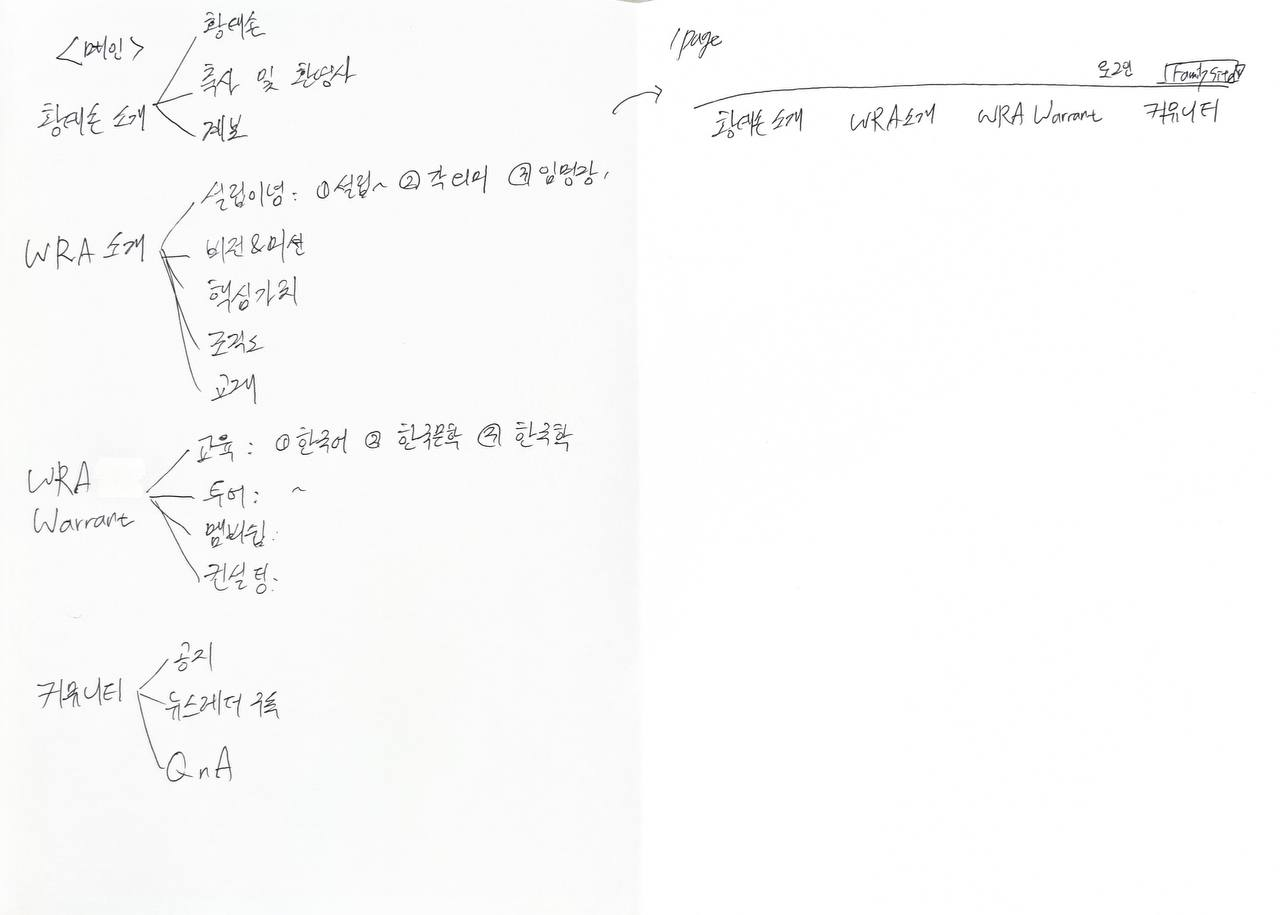 <메인>
황태손 소개
황태손
축사 및 환영사
계보
WRA 소개
설립이념: ①설립~ ②각 의미 ③임명장,
비전&미션
핵심가치
조직도
교재
WRA Warrant
교육: ①한국어 ② 한국문학 ③ 한국학
투어: ~
멤버쉽:
컨설팅:
커뮤니티
공지
뉴스레터 구독
QnA
1page
로그인 Family Site
황태손 소개 WRA소개 WRA Warrant 커뮤니티